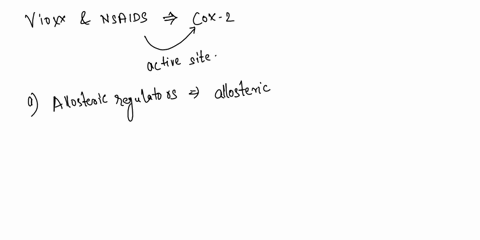 Vioxx & NSAIDS ⇒ Cox-2
active site.
a) Allosteric regulators ⇒ allosteric